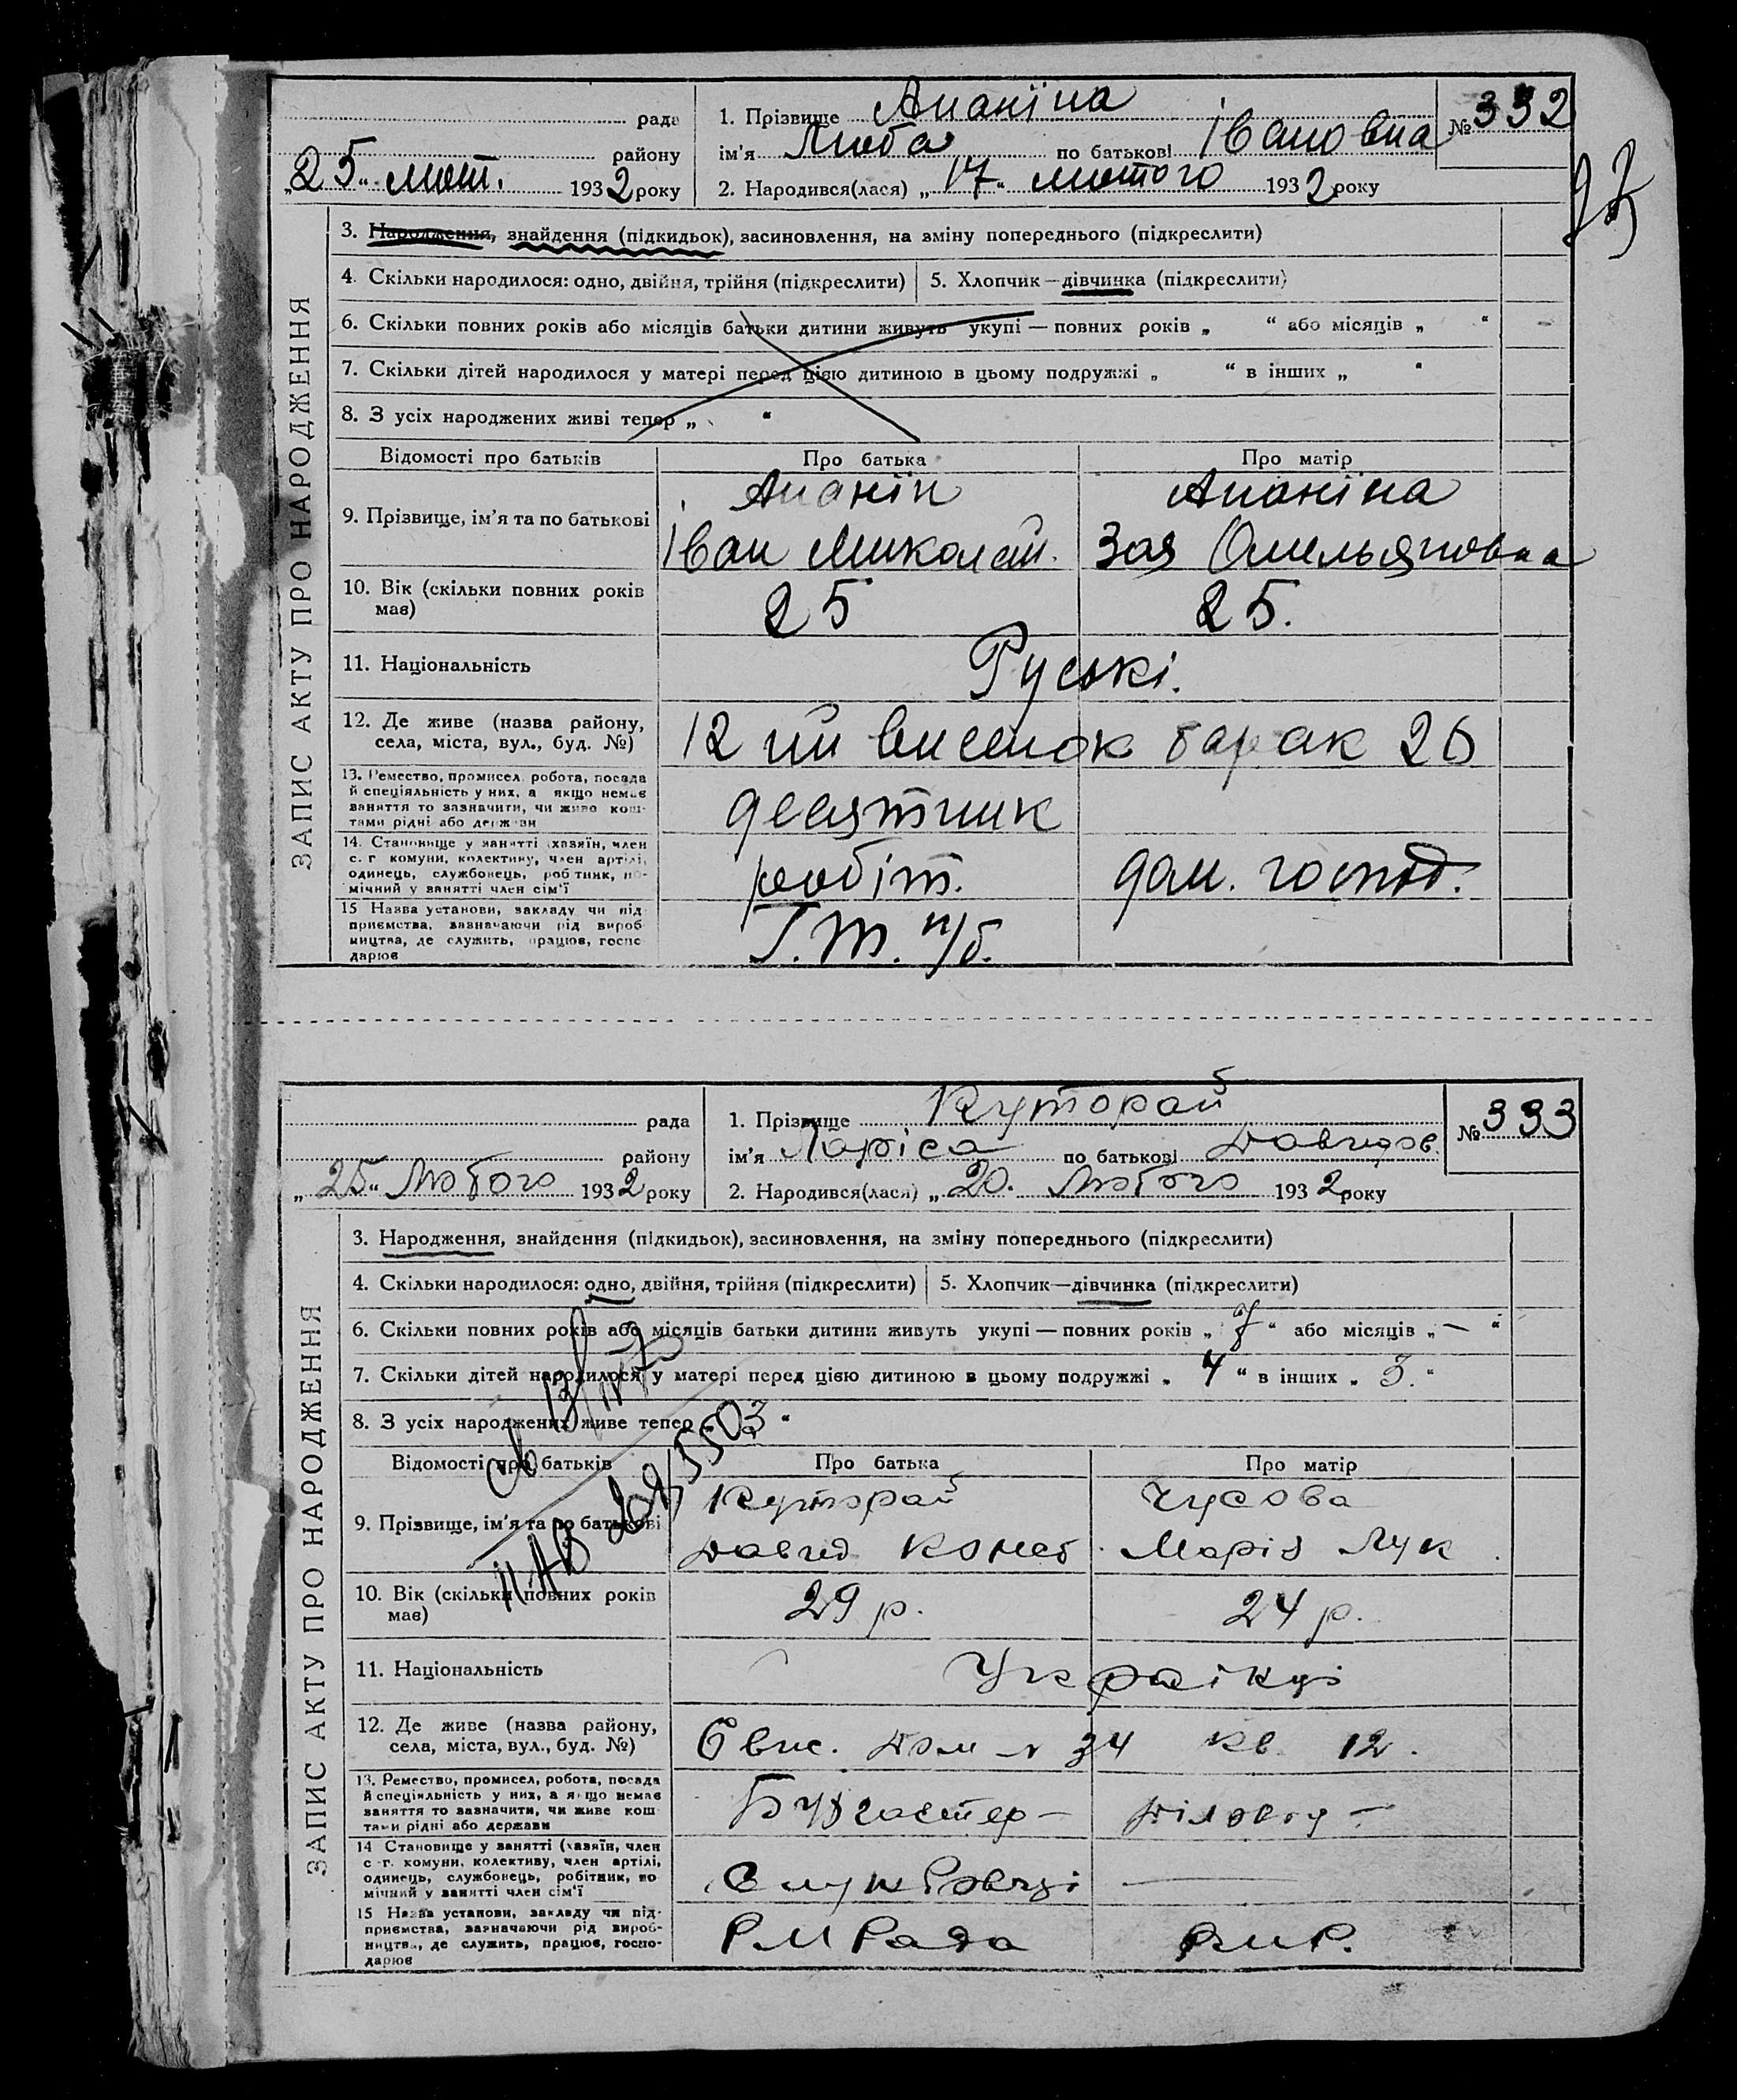 рада
району
„25“ лют. 1932 року
1. Прізвище Ананїна
ім'я Люба по батькові Івановна
2. Народився(лася) „17“ лютого 1932 року
№ 332
ЗАПИС АКТУ ПРО НАРОДЖЕННЯ
3. Народження, знайдення (підкидьок), засиновлення, на зміну попереднього (підкреслити)
4. Скільки народилося: одно, двійня, трійня (підкреслити) 5. Хлопчик—дівчинка (підкреслити)
6. Скільки повних років або місяців батьки дитини живуть укупі — повних років „ “ або місяців „ “
7. Скільки дітей народилося у матері перед цією дитиною в цьому подружжі „ “ в інших „ “
8. З усіх народжених живі тепер „ “
Відомості про батьків Про батька Про матір
9. Прізвище, ім'я та по батькові
Ананїн Ананіна
Іван Миколай. Зоя Омельяновна
10. Вік (скільки повних років має)
25 25.
11. Національність Руські.
12. Де живе (назва району,
села, міста, вул., буд. №)
12 ий виселок барак 26
13. Ремество, промисел, робота, посада
й спеціяльність у них, а якщо немає
заняття то зазначити, чи живе кош-
тами рідні або держави
десятник
14. Становище у занятті (хазяїн, член
с. г. комуни, колективу, член артілі,
одинець, службовець, робітник, по-
мічний у занятті член сім'ї
робіт. дом. господ.
15 Назва установи, закладу чи під-
приємства, зазначаючи рід вироб-
ництва, де служить, працює, госпо-
дарює
Г.т. п/б.
рада
району
„25“ Лютого 1932 року
1. Прізвище Куторай
ім'я Ларіса по батькові Давидов.
2. Народився(лася) „20. Лютого 1932 року
№ 333
ЗАПИС АКТУ ПРО НАРОДЖЕННЯ
3. Народження, знайдення (підкидьок), засиновлення, на зміну попереднього (підкреслити)
4. Скільки народилося: одно, двійня, трійня (підкреслити) 5. Хлопчик—дівчинка (підкреслити)
6. Скільки повних років або місяців батьки дитини живуть укупі — повних років „7“ або місяців „—“
7. Скільки дітей народилося у матері перед цією дитиною в цьому подружжі „4“ в інших „3.“
8. З усіх народжених живе тепер „3“
Відомості про батьків Про батька Про матір
9. Прізвище, ім'я та по батькові
Куторай Чусова
Давид Марія Лук.
10. Вік (скільки повних років має)
29 р. 24 р.
11. Національність Українці
12. Де живе (назва району,
села, міста, вул., буд. №)
6 вис. дом № 34 кв. 12.
13. Ремество, промисел, робота, посада
й спеціяльність у них, а якщо немає
заняття то зазначити, чи живе кош
тами рідні або держави
Бухгалтер — —
14 Становище у занятті (хазяїн, член
с.-г. комуни, колективу, член артілі,
одинець, службовець, робітник, по
мічний у занятті член сім'ї
Службовці —
15 Назва установи, закладу чи під-
приємства, зазначаючи рід вироб-
ництва, де служить, працює, госпо-
дарює
РМ Рада Р.М.Р.